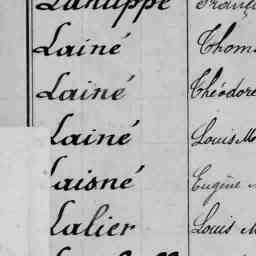 Lainé Thom
Lainé Théodore
Lainé Louis M
Laisné Eugène
Lalier Louis M